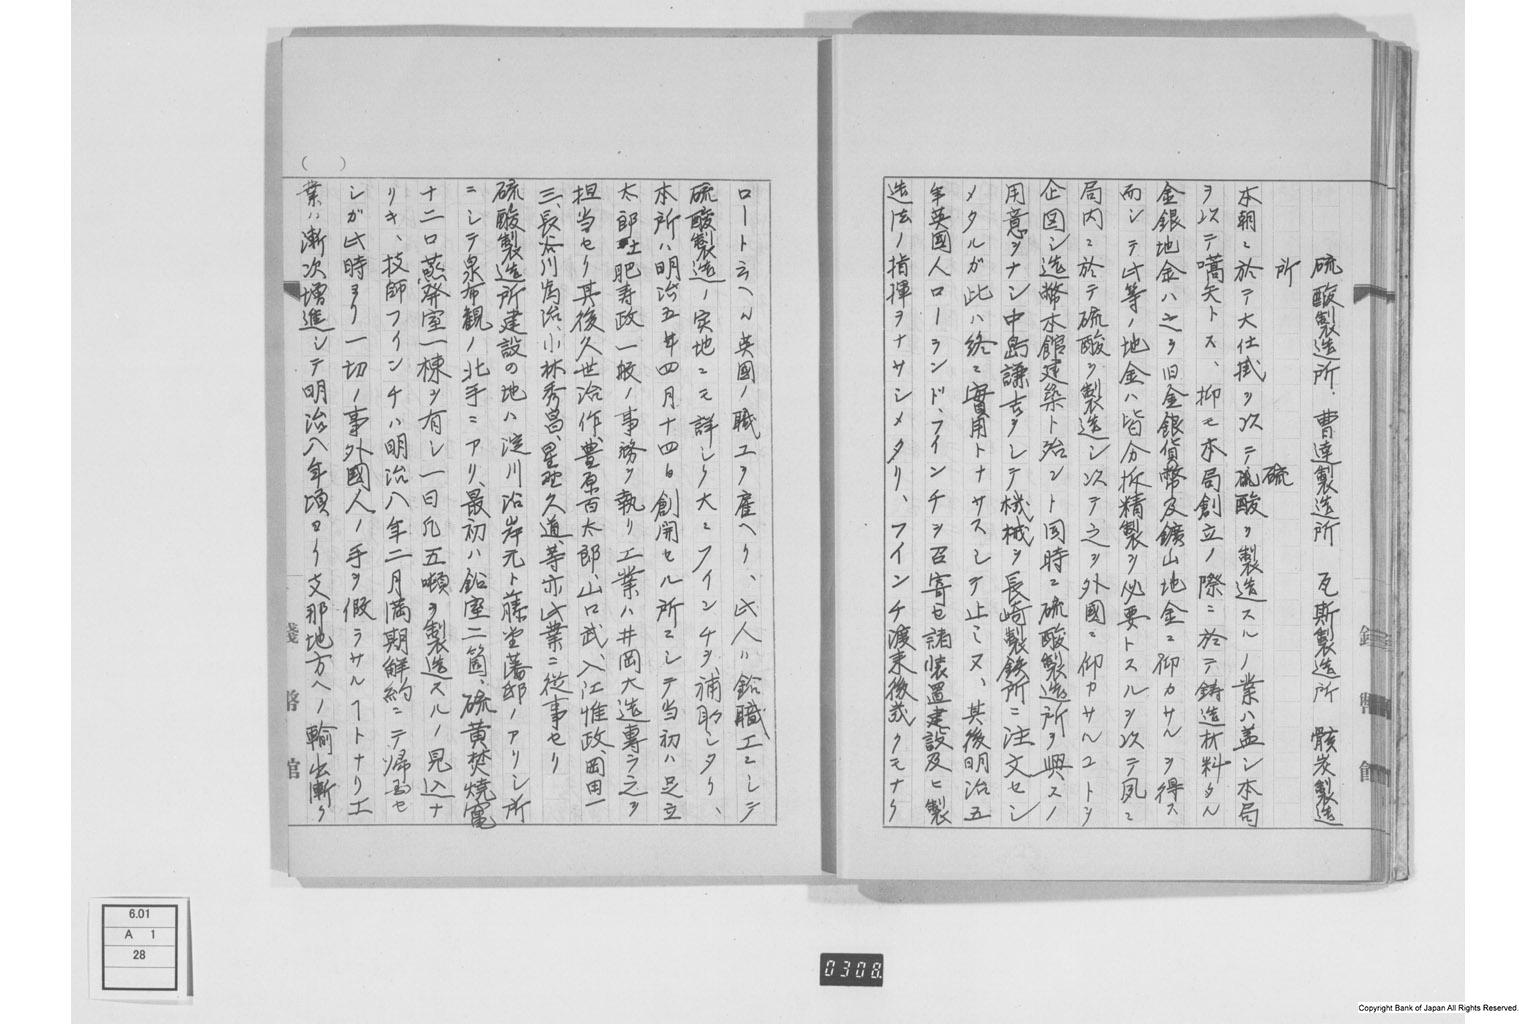 硫酸製造所、曹達製造所　瓦斯製造所　骸炭製造
所
硫
本朝ニ於テ大仕掛ヲ以テ硫酸ヲ製造スルノ業ハ蓋シ本局
ヲ以テ嚆矢トス、抑モ本局創立ノ際ニ於テ鋳造材料タル
金銀地金ハ之ヲ旧金銀貨幣及鑛山地金ニ仰カサルヲ得ス
而シテ此等ノ地金ハ皆分析精製ヲ必要トスルヲ以テ夙ニ
局内ニ於テ硫酸ヲ製造シ以テ之ヲ外國ニ仰カサルコトヲ
企図シ造幣本館建築ト殆ント同時ニ硫酸製造所ヲ興スノ
用意ヲナシ中島謙吉ヲシテ機械ヲ長崎製鉄所ニ注文セシ
メタルガ此ハ終ニ實用トナサスシテ止ミヌ、其後明治五
年英國人ローランド、フインチヲ召寄セ諸装置建設及ヒ製
造法ノ指揮ヲナサシメタリ、フインチ渡来後幾クモナク
ロート云ヘル英國ノ職工ヲ雇ヘリ、此人ハ鉛職工ニシテ
硫酸製造ノ実地ニモ詳シク大ニフインチヲ補助シタリ、
本所ハ明治五年四月十四日創開セル所ニシテ当初ハ足立
太郎土肥寿政一般ノ事務ヲ執リ工業ハ井岡大造専ラ之ヲ
担当セリ其後久世治作、豊原百太郎、山口武、入江惟政、岡田一
三、長谷川為治、小林秀昌、星野久道、等亦此業ニ従事セリ
硫酸製造所建設の地ハ淀川沿岸元ト藤堂藩邸ノアリシ所
ニシテ泉布観ノ北手ニアリ、最初ハ鉛室二箇、硫黄焚焼竃
十二口蒸発室一棟ヲ有シ一日凡五噸ヲ製造スルノ見込ナ
リキ、技師フインチハ明治八年二月満期解約ニテ帰国セ
シガ此時ヨリ一切ノ事外國人ノ手ヲ假ラサルコトナリ工
業ハ漸次増進シテ明治八年頃ヨリ支那地方ヘノ輸出漸ク
( )
6.01
A 1
28
0308
Copyright Bank of Japan All Rights Reserved.